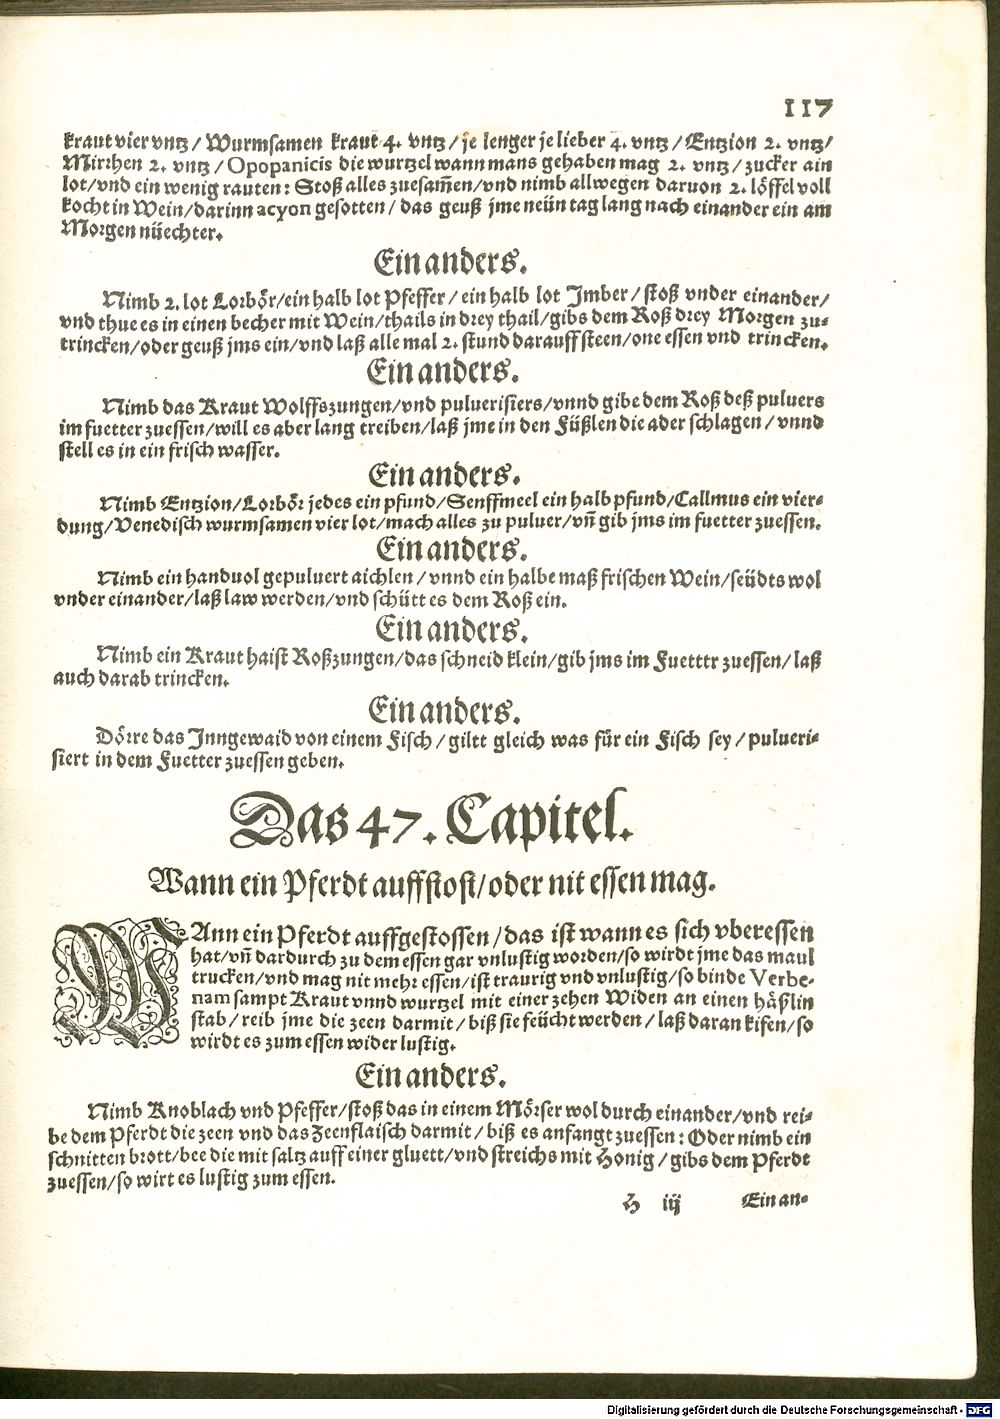 117
kraut vier vntz / Wurmsamen kraut 4. vntz / je lenger je lieber 4. vntz / Entzion 2. vntz/
Mirrhen 2. vntz / Opopanicis die wurtzel wann mans gehaben mag 2. vntz / zucker ain
lot/vnd ein wenig rauten: Stoß alles zuesam̄en/vnd nimb allwegen daruon 2. löffel voll
kocht in Wein/darinn acyon gesotten / das geuß jme neün tag lang nach einander ein am
Morgen nüechter.
Ein anders.
Nimb 2. lot Lorbör/ein halb lot Pfeffer / ein halb lot Imber / stoß vnder einander/
vnd thue es in einen becher mit Wein/thails in drey thail/gibs dem Roß drey Morgen zu-
trincken/oder geuß jms ein/vnd laß alle mal 2. stund darauff steen/one essen vnd trincken.
Ein anders.
Nimb das Kraut Wolffszungen/vnd puluerisiers/vnnd gibe dem Roß deß puluers
im fuetter zuessen/will es aber lang treiben/laß jme in den Füßlen die ader schlagen / vnnd
stell es in ein frisch wasser.
Ein anders.
Nimb Entzion/Lorbör jedes ein pfund/Senffmeel ein halb pfund/Callmus ein vier-
dung/Venedisch wurmsamen vier lot/mach alles zu puluer/vn̄ gib jms im fuetter zuessen.
Ein anders.
Nimb ein handuol gepuluert aichlen / vnnd ein halbe maß frischen Wein/seüdts wol
vnder einander/laß law werden/vnd schütt es dem Roß ein.
Ein anders.
Nimb ein Kraut haist Roßzungen/das schneid klein/gib jms im Fuetttr zuessen/laß
auch darab trincken.
Ein anders.
Dörre das Inngewaid von einem Fisch / giltt gleich was für ein Fisch sey / pulueri-
siert in dem Fuetter zuessen geben.
Das 47. Capitel.
Wann ein Pferdt auffstost/oder nit essen mag.
WAnn ein Pferdt auffgestossen / das ist wann es sich vberessen
hat/vn̄ dardurch zu dem essen gar vnlustig worden/so wirdt jme das maul
trucken/vnd mag nit mehr essen/ist traurig vnd vnlustig/so binde Verbe-
nam sampt Kraut vnnd wurtzel mit einer zehen Widen an einen häßlin
stab / reib jme die zeen darmit / biß sie feücht werden / laß daran kifen/so
wirdt es zum essen wider lustig.
Ein anders.
Nimb Knoblach vnd Pfeffer/stoß das in einem Mörser wol durch einander/vnd rei-
be dem Pferdt die zeen vnd das Zeenflaisch darmit / biß es anfangt zuessen: Oder nimb ein
schnitten brott/bee die mit saltz auff einer gluett/vnd streichs mit Honig / gibs dem Pferdt
zuessen/so wirt es lustig zum essen.
H iij Ein an-
Digitalisierung gefördert durch die Deutsche Forschungsgemeinschaft - DFG